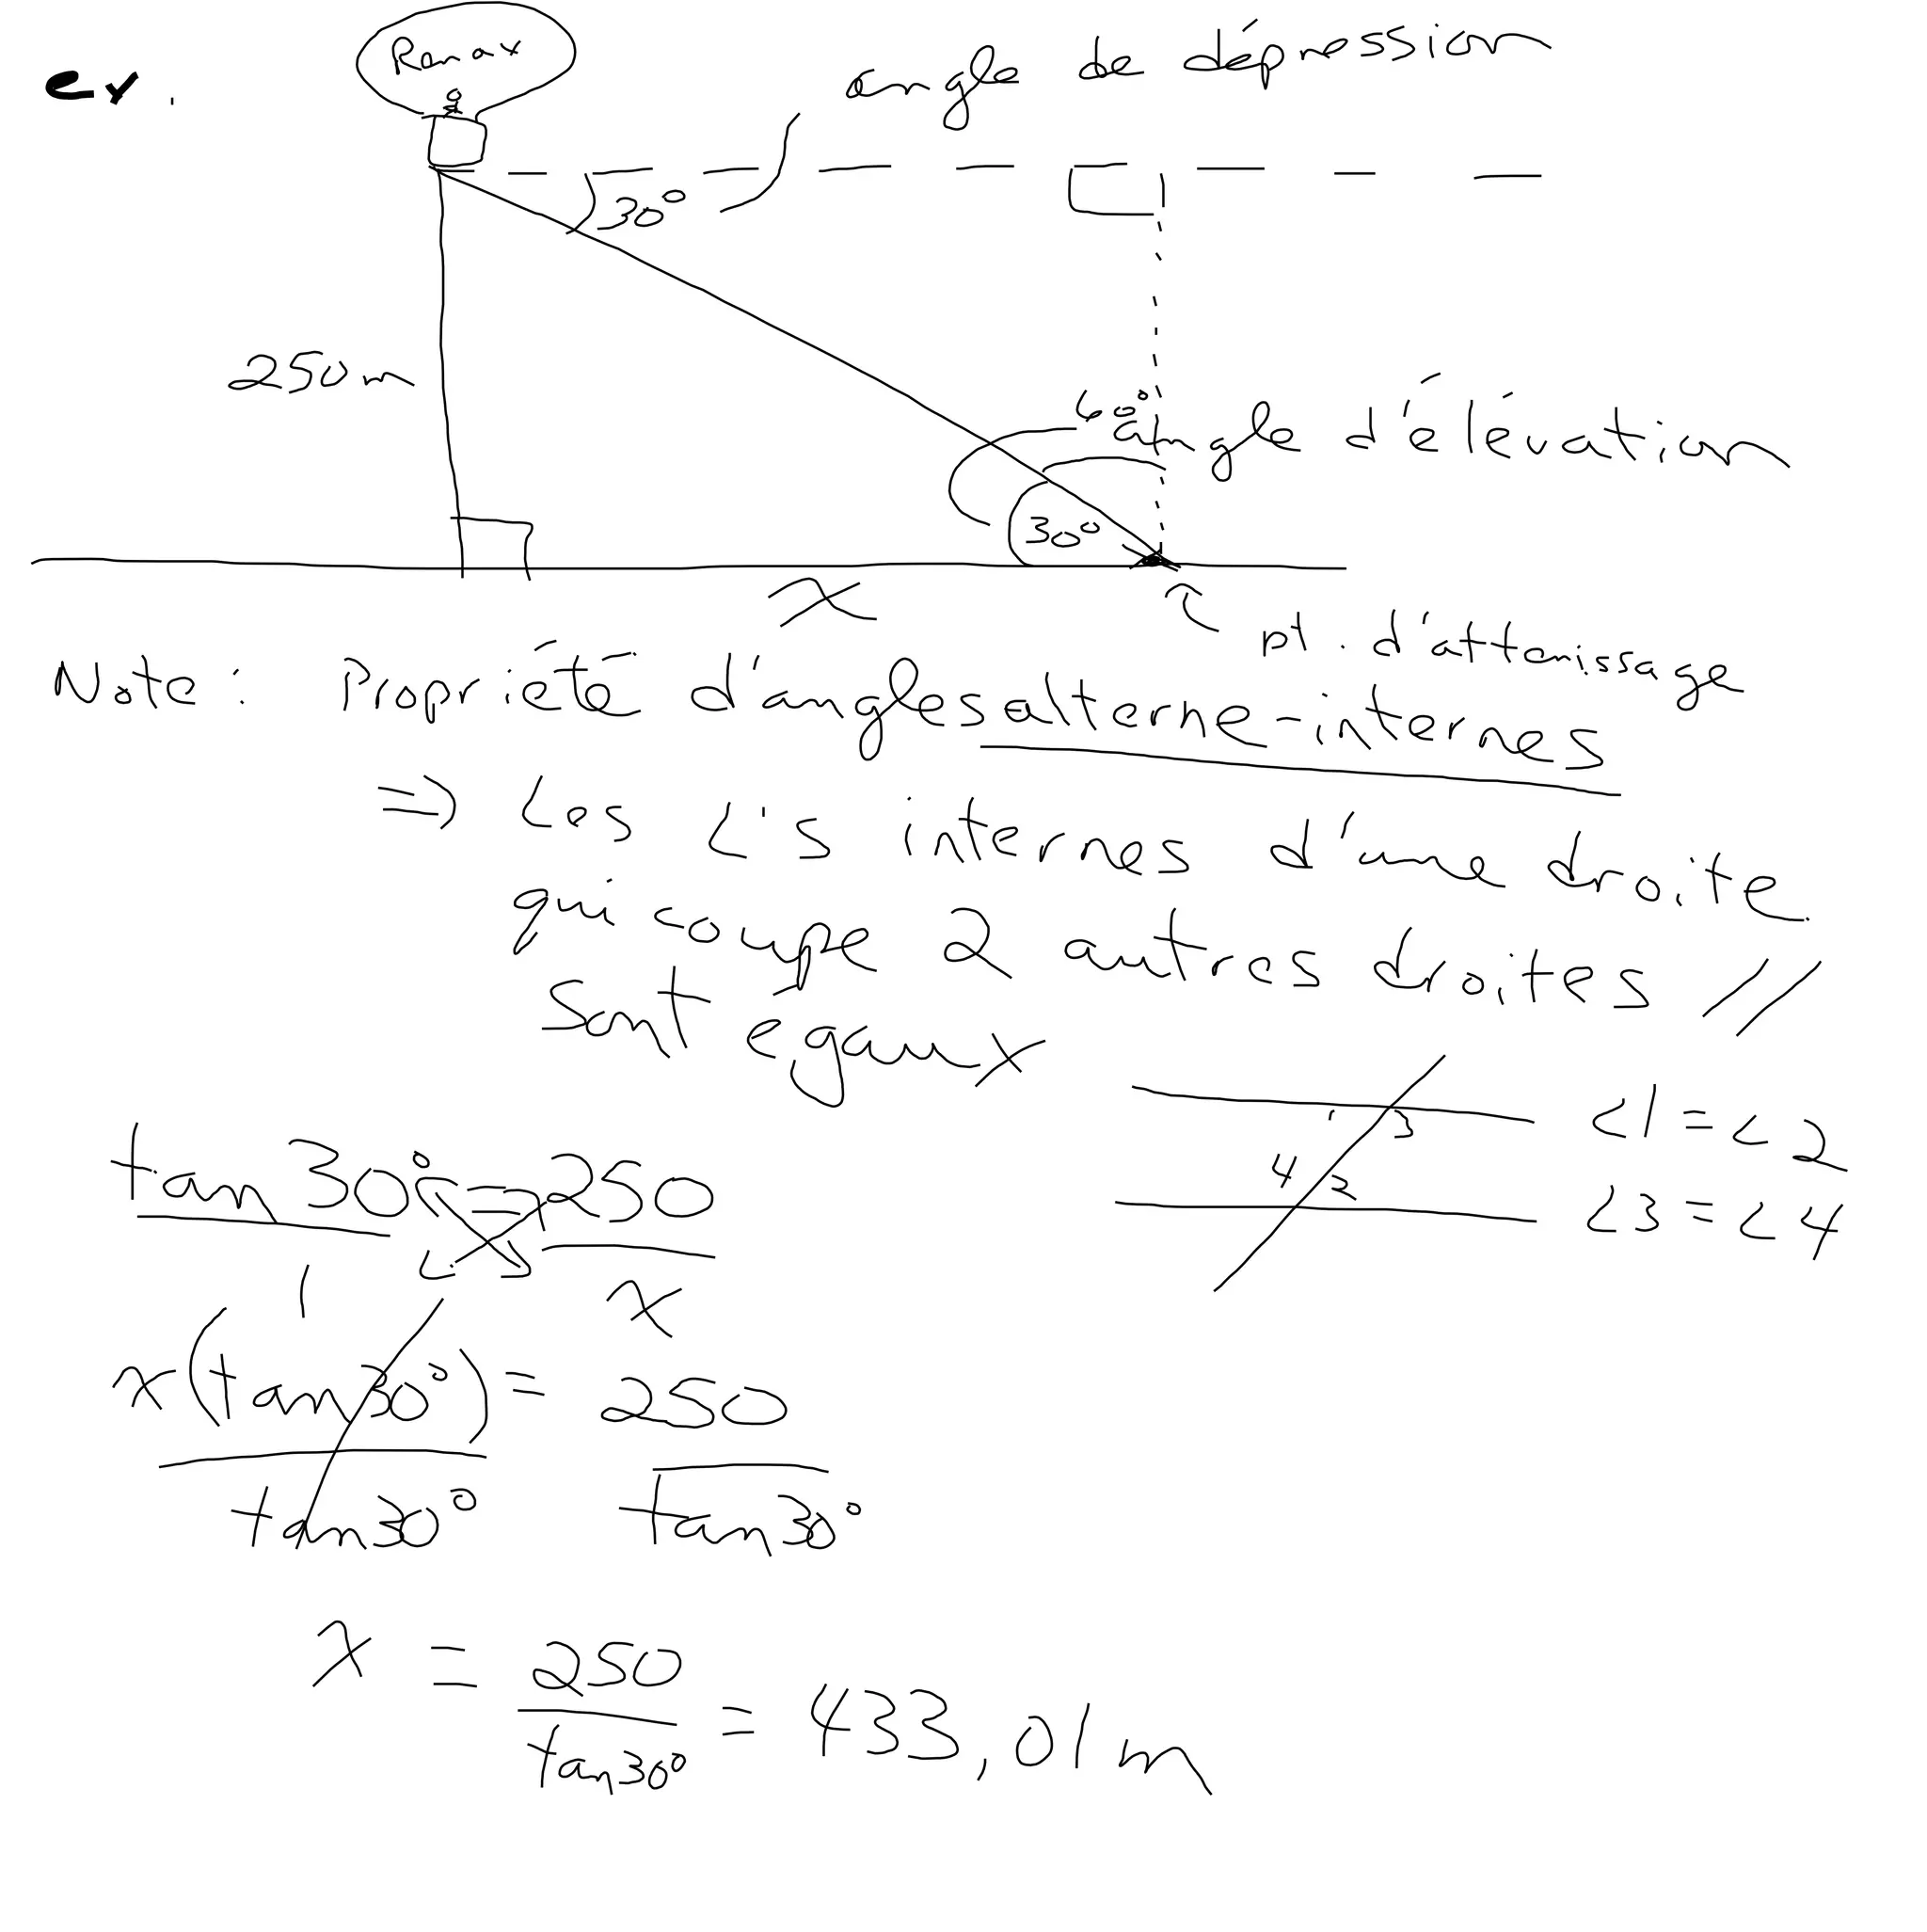 ex.
Remax
angle de dépression
30°
250m
60°
angle d'élévation
30°
x
pt. d'atterrissage
Note: Propriété d'angles alterne-internes
=> Les ∠'s internes d'une droite
qui coupe 2 autres droites //
sont egaux
1 3
4 2
∠1 = ∠2
∠3 = ∠4
tan 30° = 250
1 x
x(tan 30°) = 250
tan 30° tan 30°
x = 250 = 433,01 m
tan 30°